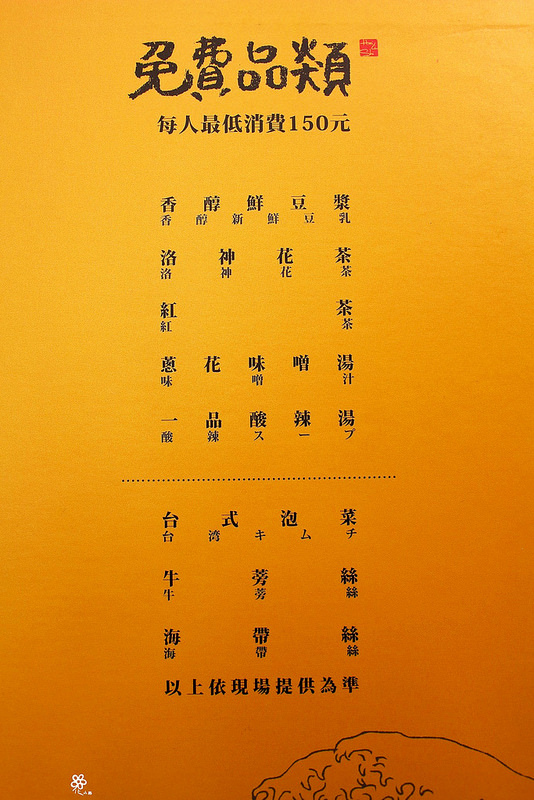 免費品類
每人最低消費150元
香醇鮮豆漿
香醇新鮮豆乳
洛神花茶
洛神花茶
紅茶
紅茶
蔥花味噌湯
味噌汁
一品酸辣湯
酸辣スープ
台式泡菜
台湾キムチ
牛蒡絲
牛蒡絲
海帶絲
海帶絲
以上依現場提供為準